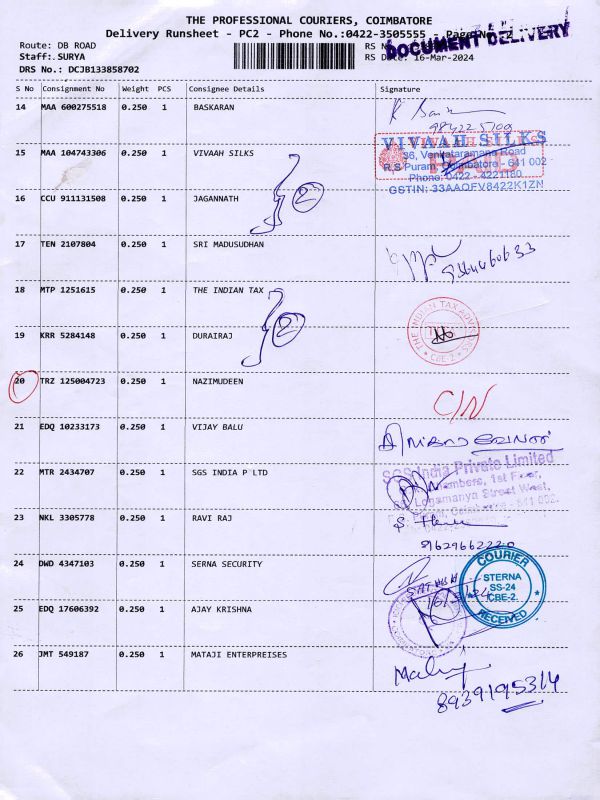 THE PROFESSIONAL COURIERS, COIMBATORE
Delivery Runsheet - PC2 - Phone No.:0422-3505555 - Page No.
DOCUMENT DELIVERY
Route: DB ROAD
RS No
Staff: SURYA
RS Date: 16-Mar-2024
DRS No.: DCJB133858702
S No Consignment No Weight PCS Consignee Details Signature
14 MAA 600275518 0.250 1 BASKARAN
15 MAA 104743306 0.250 1 VIVAAH SILKS
VIVAAH SILKS
36, Venkataramana Road
R.S Puram, Coimbatore - 641 002
Phone: 0422 - 4221180
GSTIN: 33AAQFV8422K1ZN
16 CCU 911131508 0.250 1 JAGANNATH
2
17 TEN 2107804 0.250 1 SRI MADUSUDHAN
9364460633
18 MTP 1251615 0.250 1 THE INDIAN TAX
THE INDIAN TAX
CBE-2.
19 KRR 5284148 0.250 1 DURAIRAJ
2
20 TRZ 125004723 0.250 1 NAZIMUDEEN
C/N
21 EDQ 10233173 0.250 1 VIJAY BALU
22 MTR 2434707 0.250 1 SGS INDIA P LTD
SGS India Private Limited
1st Floor,
Logamanya Street West,
Coimbatore - 641 002.
23 NKL 3305778 0.250 1 RAVI RAJ
9629662220
24 DWD 4347103 0.250 1 SERNA SECURITY
COURIER
STERNA
SS-24
CBE-2.
RECEIVED
25 EDQ 17606392 0.250 1 AJAY KRISHNA
26 JMT 549187 0.250 1 MATAJI ENTERPREISES
8939195314